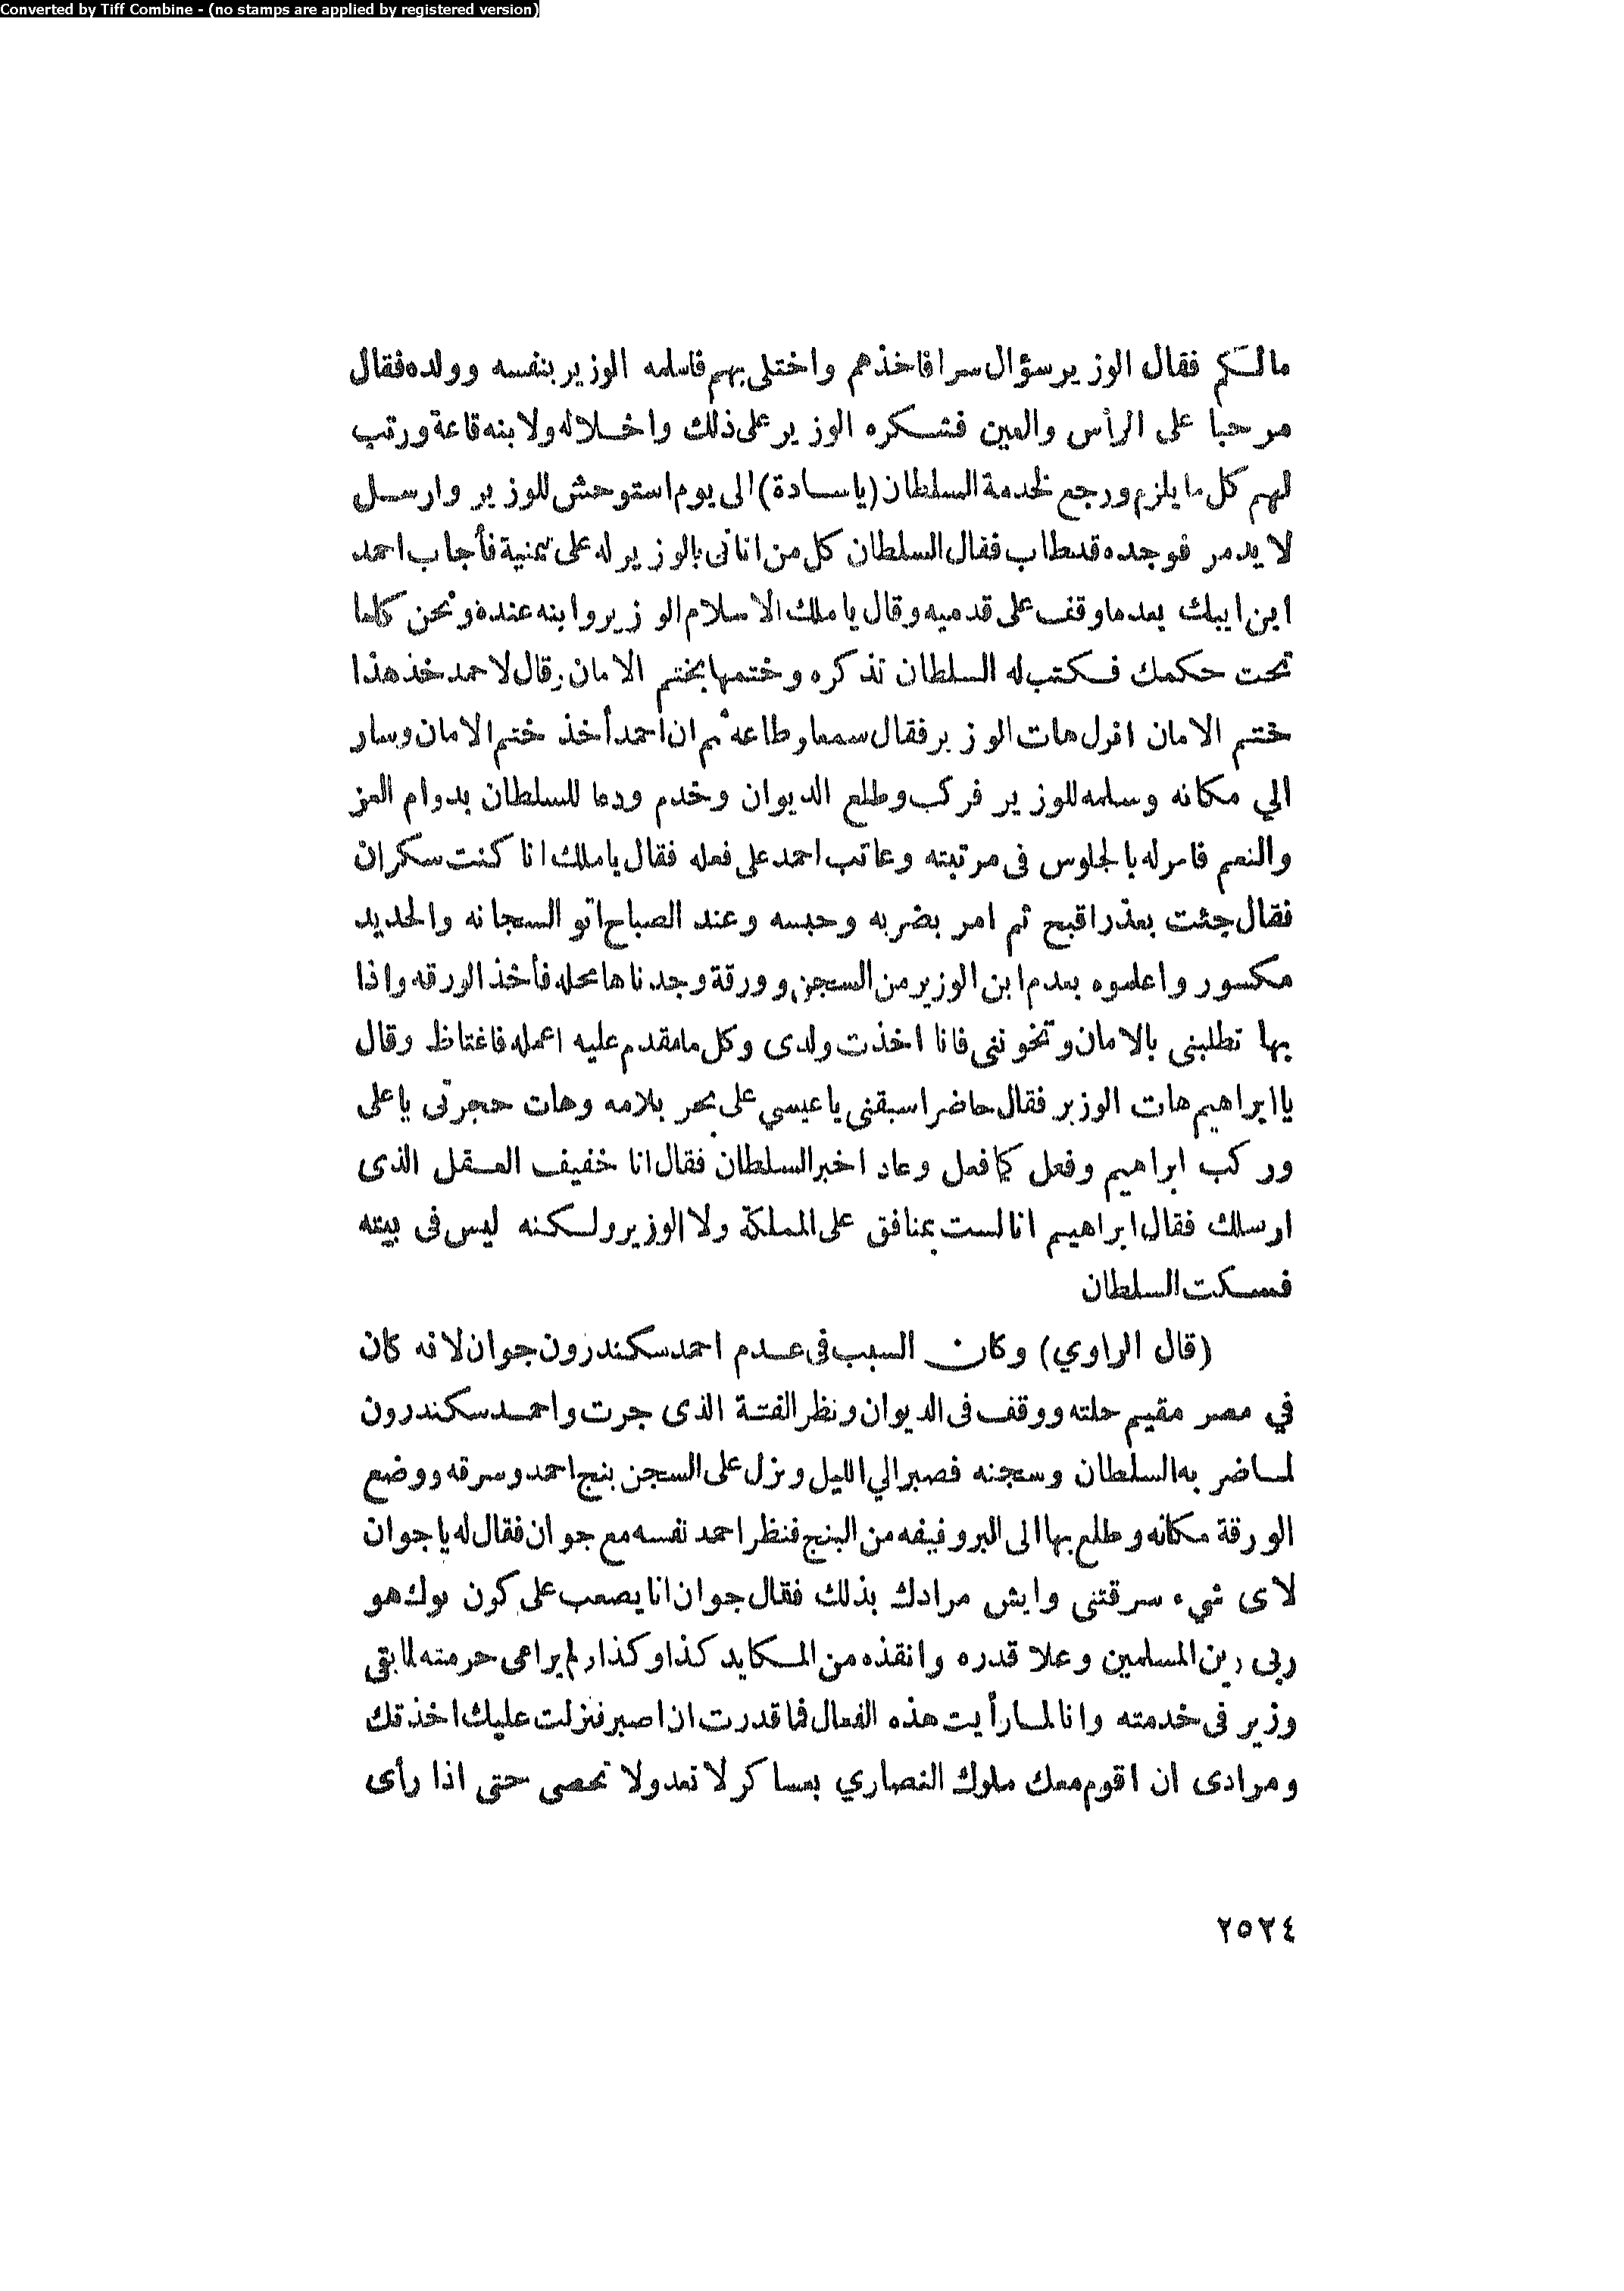 Converted by Tiff Combine - (no stamps are applied by registered version)
مالكم فقال الوزير سؤال سرا فاخذهم واختلى بهم فاسلمه الوزير بنفسه وولده فقال
مرحبا على الرأس والعين فشكره الوزير على ذلك واخلا له ولابنه قاعة ورتب
لهم كل ما يلزم ورجع لخدمة السلطان (ياسادة) الى يوم استوحش للوزير وارسل
لايدمر فوجده قد طاب فقال السلطان كل من اتانى بالوزير له على تمنية فأجاب احمد
ابن ايبك بعد ما وقف على قدميه وقال يا ملك الاسلام الوزير وابنه عنده ونحن كلنا
تحت حكمك فكتب له السلطان تذكره وختمها بختم الامان وقال لاحمد خذ هذا
ختم الامان انزل هات الوزير فقال سمعا وطاعة ثم ان احمد أخذ ختم الامان وسار
الي مكانه وسلمه للوزير فركب وطلع الديوان وخدم ودعا للسلطان بدوام العز
والنعم فامر له بالجلوس فى مرتبته وعاتب احمد على فعله فقال يا ملك انا كنت سكران
فقال جئت بعذر اقبح ثم امر بضربه وحبسه وعند الصباح اتو السجانه والحديد
مكسور واعلموه بعدم ابن الوزير من السجن وورقة وجدناها محله فأخذ الورقه واذا
بها تطلبنى بالامان وتخوننى فانا اخذت ولدى وكل ما مقدم عليه اعمله فاغتاظ وقال
يا ابراهيم هات الوزير فقال حاضر اسبقنى يا عيسي على بحر بلامه وهات حجرتى يا على
وركب ابراهيم وفعل كما فعل وعاد اخبر السلطان فقال انا خفيف العقل الذى
ارسلك فقال ابراهيم انا لست بمنافق على المملكة ولا الوزير ولكنه ليس فى بيته
فسكت السلطان
(قال الراوي) وكان السبب فى عدم احمد سكندرون جوان لانه كان
في مصر مقيم حلته ووقف فى الديوان ونظر الفتنة الذى جرت واحمد سكندرون
لما ضربه السلطان وسجنه فصبر الي الليل ونزل على السجن بنج احمد وسرقه ووضع
الورقة مكانه وطلع بها الى البر وفيفه من البنج فنظر احمد نفسه مع جوان فقال له يا جوان
لاى شيء سرقتنى وايش مرادك بذلك فقال جوان انا يصعب على كون بوك هو
ربى رين المسلمين وعلا قدره وانقذه من المكايد كذا وكذا ولم يراعى حرمته لما بقى
وزير فى خدمته وانا لما رأيت هذه الفعال فما قدرت ان اصبر فنزلت عليك اخذتك
ومرادى ان اقوم معك ملوك النصاري بعساكر لا تعد ولا تحصى حتى اذا رأى
٢٥٢٤